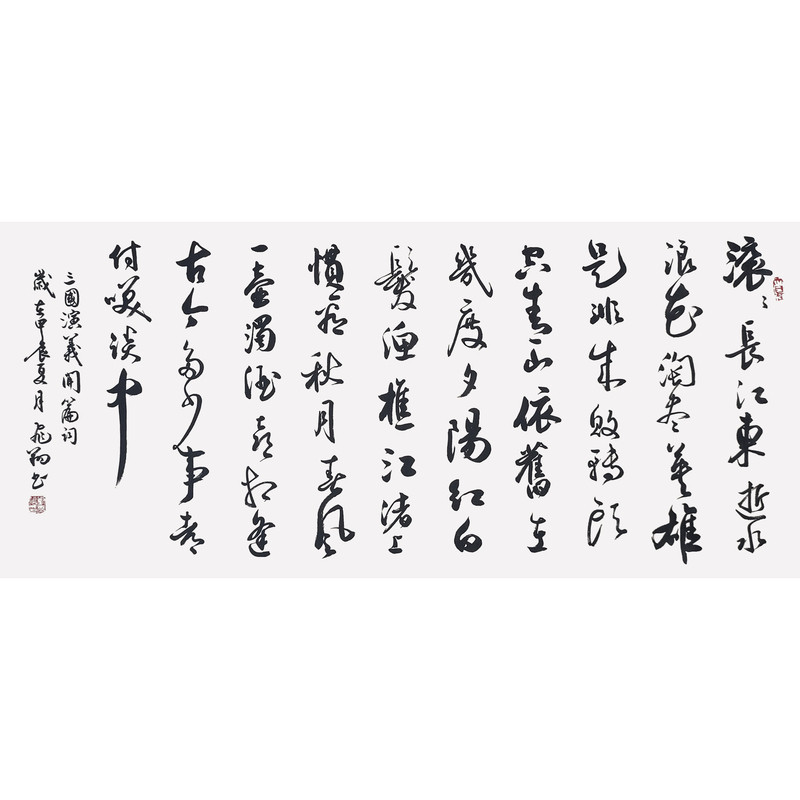 滚〻長江東逝水
浪花淘尽英雄
是非成敗轉頭
空青山依舊在
幾度夕陽紅白
髮漁樵江渚上
慣看秋月春風
一壺濁酒喜相逢
古今多少事都
付笑談中
三國演義開篇詞
歲在甲辰夏月飛翔書